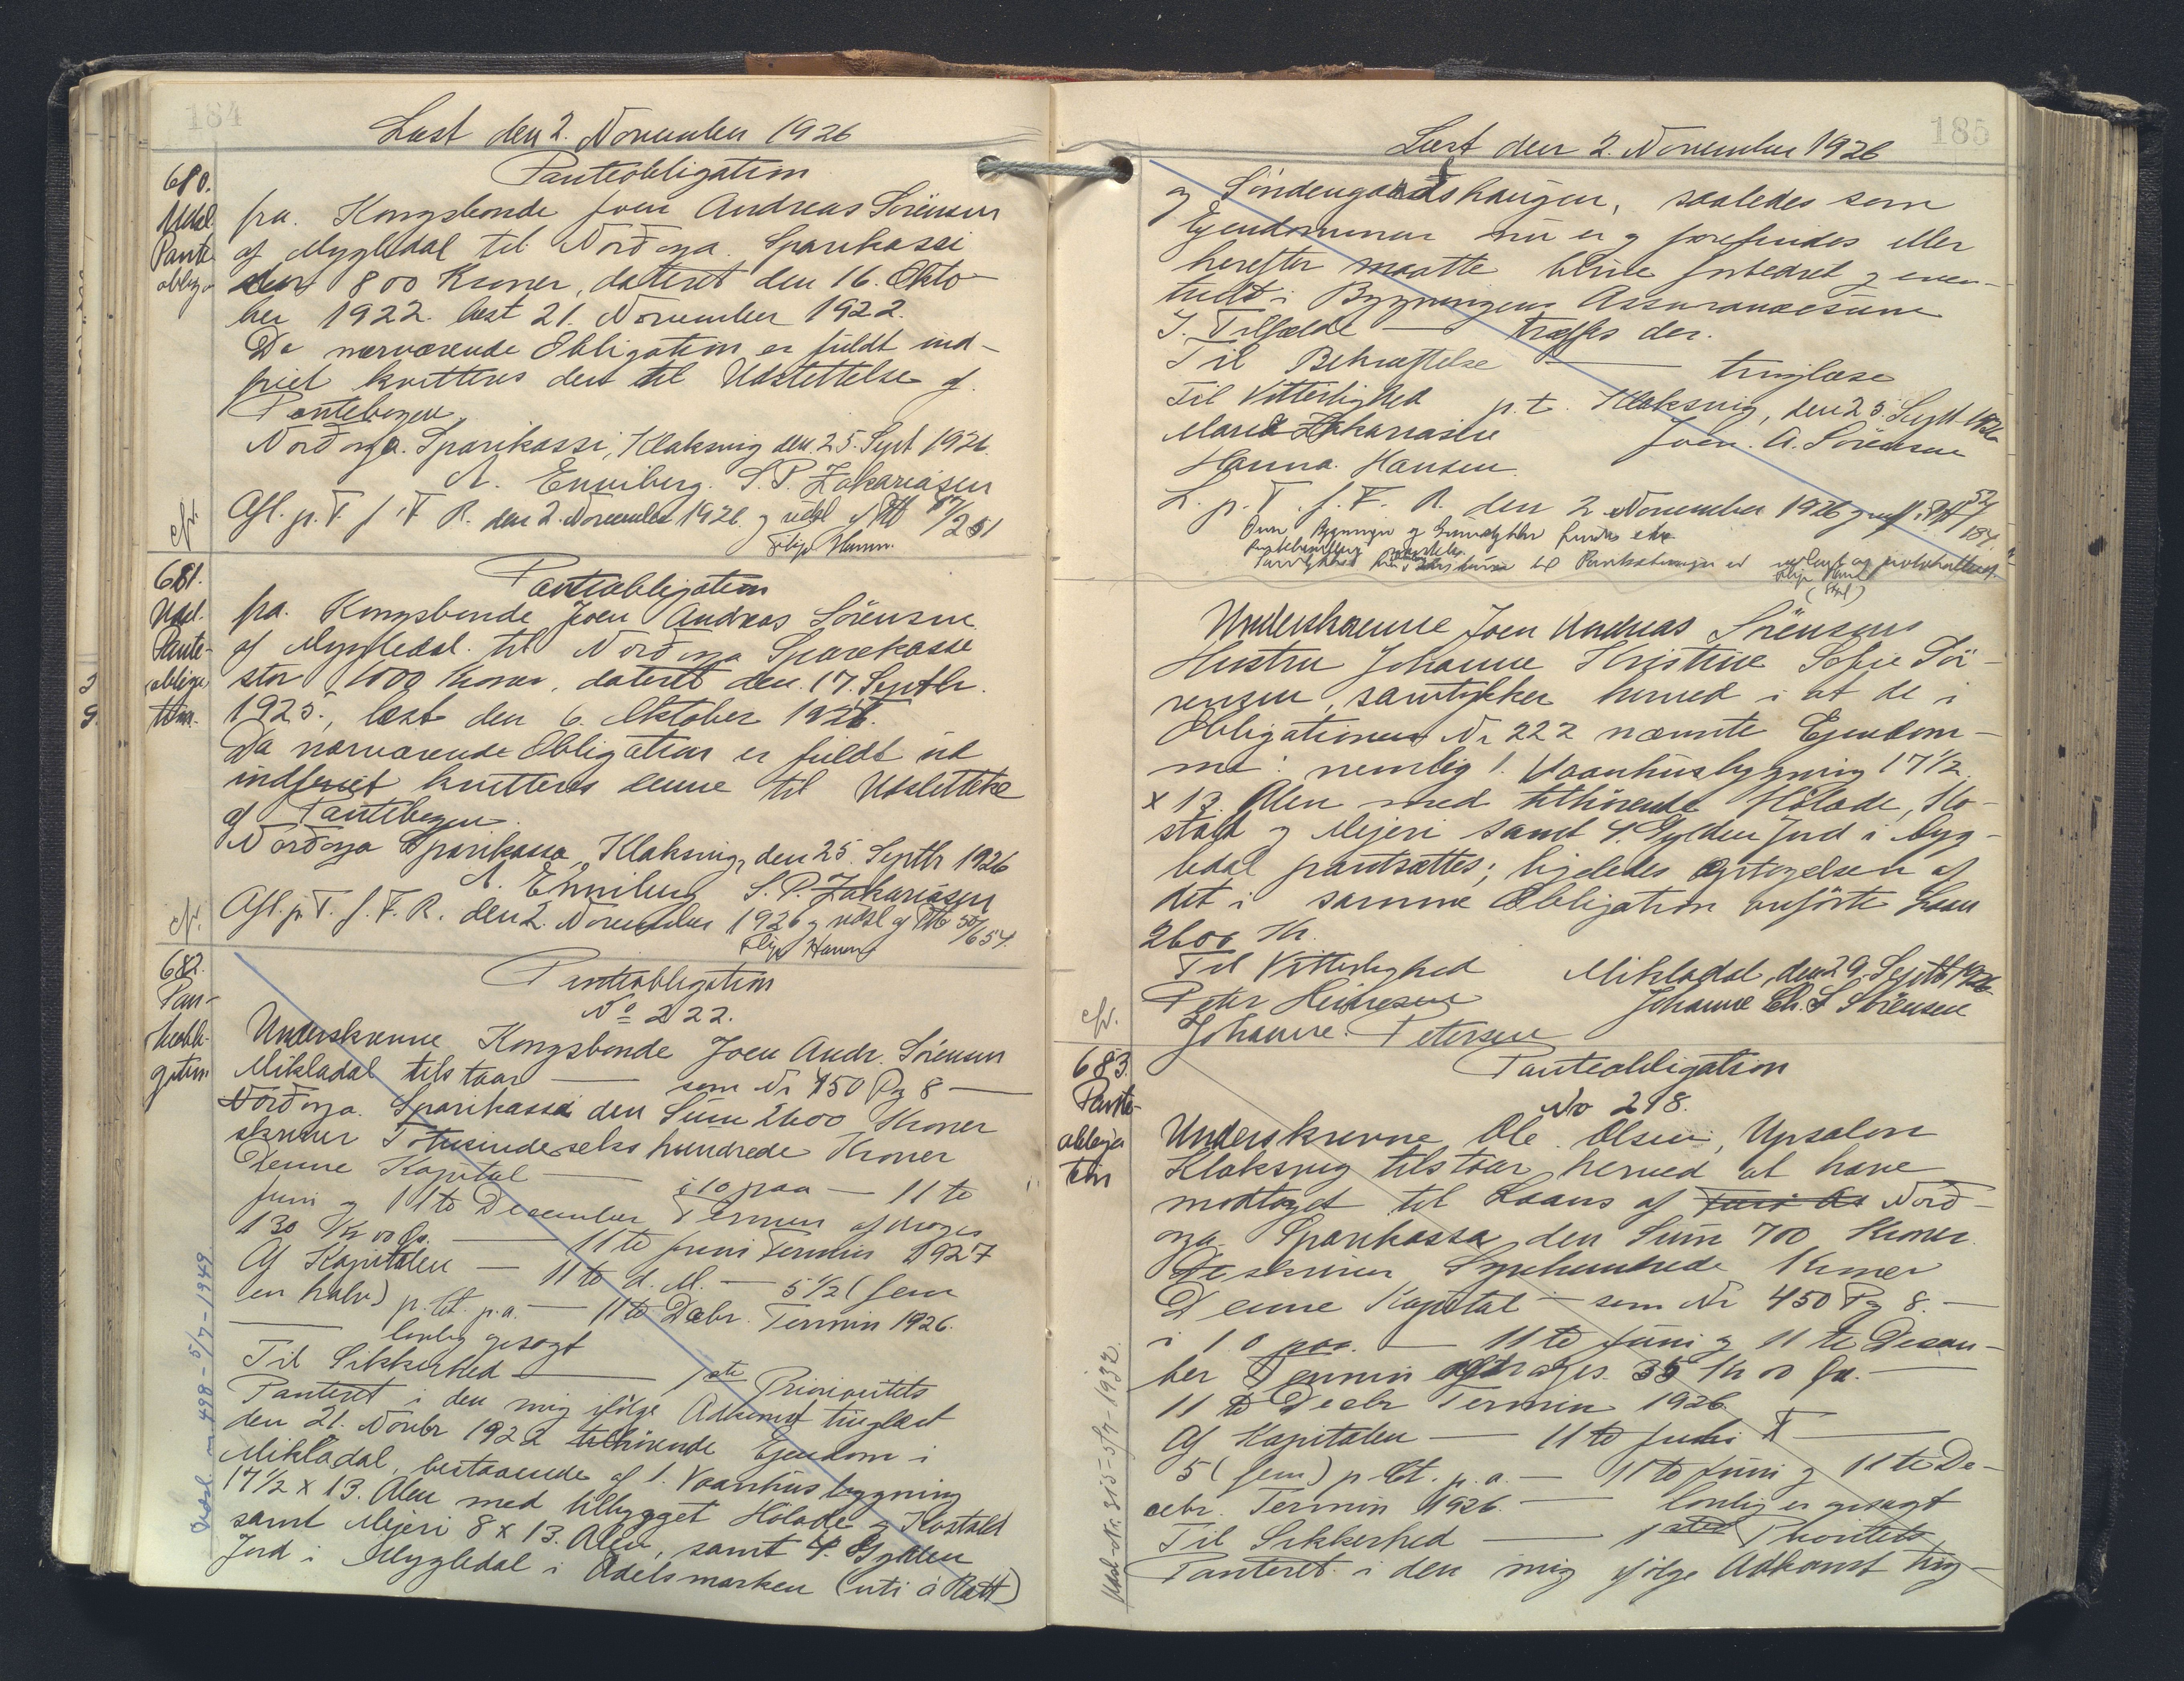 184
Læst den 2. November 1926
680.
Udsl.
Pante
obliga
Panteobligation
fra. Kongsbonde Joen Andreas Sörensen
af Mygledal til Norðoya Sparikassi
800 Kroner, dateret den 16. Okto-
ber 1922. læst 21. November 1922.
Da nærværende Obligation er fuldt ind-
friet kvitteres den til Udslettelse af
Pantebogen.
Norðoya Sparikassi, Klaksvig den 25. Sept 1926.
A. Enniberg. S. P. Zakariasen
Afl. p. T. f. F. R. den 2. November 1926 og udsl af Ptb 47/251
cfr.
681.
Udsl.
Pante-
obliga
tion.
Panteobligation
fra. Kongsbonde Joen Andreas Sörensen
af Mygledal. til Norðoya Sparekasse
stor 1000 Kroner, dateret den 17. Septbr.
1925., læst den 6. Oktober 1925.
Da nærværende Obligation er fuldt ud
indfriet kvitteres denne til Udslettelse
af Pantebogen.
Norðoya Sparikassa, Klaksvig, den 25. Septbr 1926
A. Enniberg S. P. Zakariasen
Afl. p. T. f. F. R. den 2. November 1926 og udsl af Ptb 50/654.
cfr.
682.
Pan-
teobli-
gation
Panteobligation
No 222.
Underskrevne Kongsbonde Joen Andr. Sörensen
Mikladal tilstaar — som Nr 450 Pg 8 —
Norðoya. Sparikassa den Sum 2600 Kroner
skriver Totusindeseks hundrede Kroner
Denne Kapital — i 10 paa — 11te
Juni og 11te December Termin afdrages
130 Kr 00 Ør. — 11te Juni Termin 1927
Af Kapitalen — 11te d. M. — 5 1/2 (fem
en halv) p. Ct. p. a. — 11te Decbr. Termin 1926.
— lovlig gesagt
Til Sikkerhed — 1ste Prioritets
Panteret i den mig ifölge Adkomst tinglæst
den 21. Novbr 1922 tilhörende Ejendom i
Mikladal, bestaaende af 1. Vaanhusbygning
17 1/2 x 13. Alen med tilbygget Hölade og Kostald
samt Mejeri 8 x 13. Alen, samt 4. Gylden
Jord i Mygledal i Odelsmarken (uti á Ratt)
Udsl. Nr 498 - 5/7 - 1949
185
Læst den 2. November 1926
og Söndengaardshaugen, saaledes som
Ejendommen nu er og forefindes eller
herefter maatte blive forbedret og even-
tuelt i Bygningens Assurancesum
I. Tilfælde — træffes der.
Til Bekræftelse — tinglæse
Til Vitterlighed p. t. Klaksvig, den 25. Sept 1926
Maria Zakariasen Joen. A. Sörensen
Hanna Hansen.
L. p. T. f. F. R. den 2 November 1926
Underskrevne Joen Andreas Sörensens
Hustru Johanne Kristine Sofie Sö-
rensen, samtykker herved i at de i
Obligationen Nr 222 nævnte Ejendom-
me: nemlig 1. Vaanhusbygning 17 1/2
x 13. Alen med tilhörende Hölade, Ko-
stald og Mejeri samt 4. Gylden Jord i Myg-
ledal pantsættes; ligeledes Optagelsen af
det i samme Obligation anförte Laan
2600 Kr.
Til Vitterlighed Mikladal, den 29. Septbr 1926
Peter Heinesen Johanne Ch. S Sörensen
Johanne. Petersen
cfr.
683.
Pante-
obliga
tion
Panteobligation
No 218.
Underskrevne Ole Olsen, Upsalom
Klaksvig tilstaar herved at have
modtaget til Laans af Norð-
oya Sparikassa den Sum 700 Kroner.
skriver Syvhundrede Kroner
Denne Kapital — som Nr 450 Pg 8. —
i 10 paa. — 11te Juni og 11te Decem-
ber Termin afdrages. 35 Kr 00 Ør. —
11te Decbr Termin 1926
Af Kapitalen — 11te Juni T —
5 (fem) p. Ct. p. a. — 11te Juni og 11te De-
cebr. Termin 1926. — lovlig er gesagt
Til Sikkerhed — 1ste Prioritets
Panteret i den mig ifölge Adkomst ting-
Udsl. Nr. 315 - 5/4 - 1932.